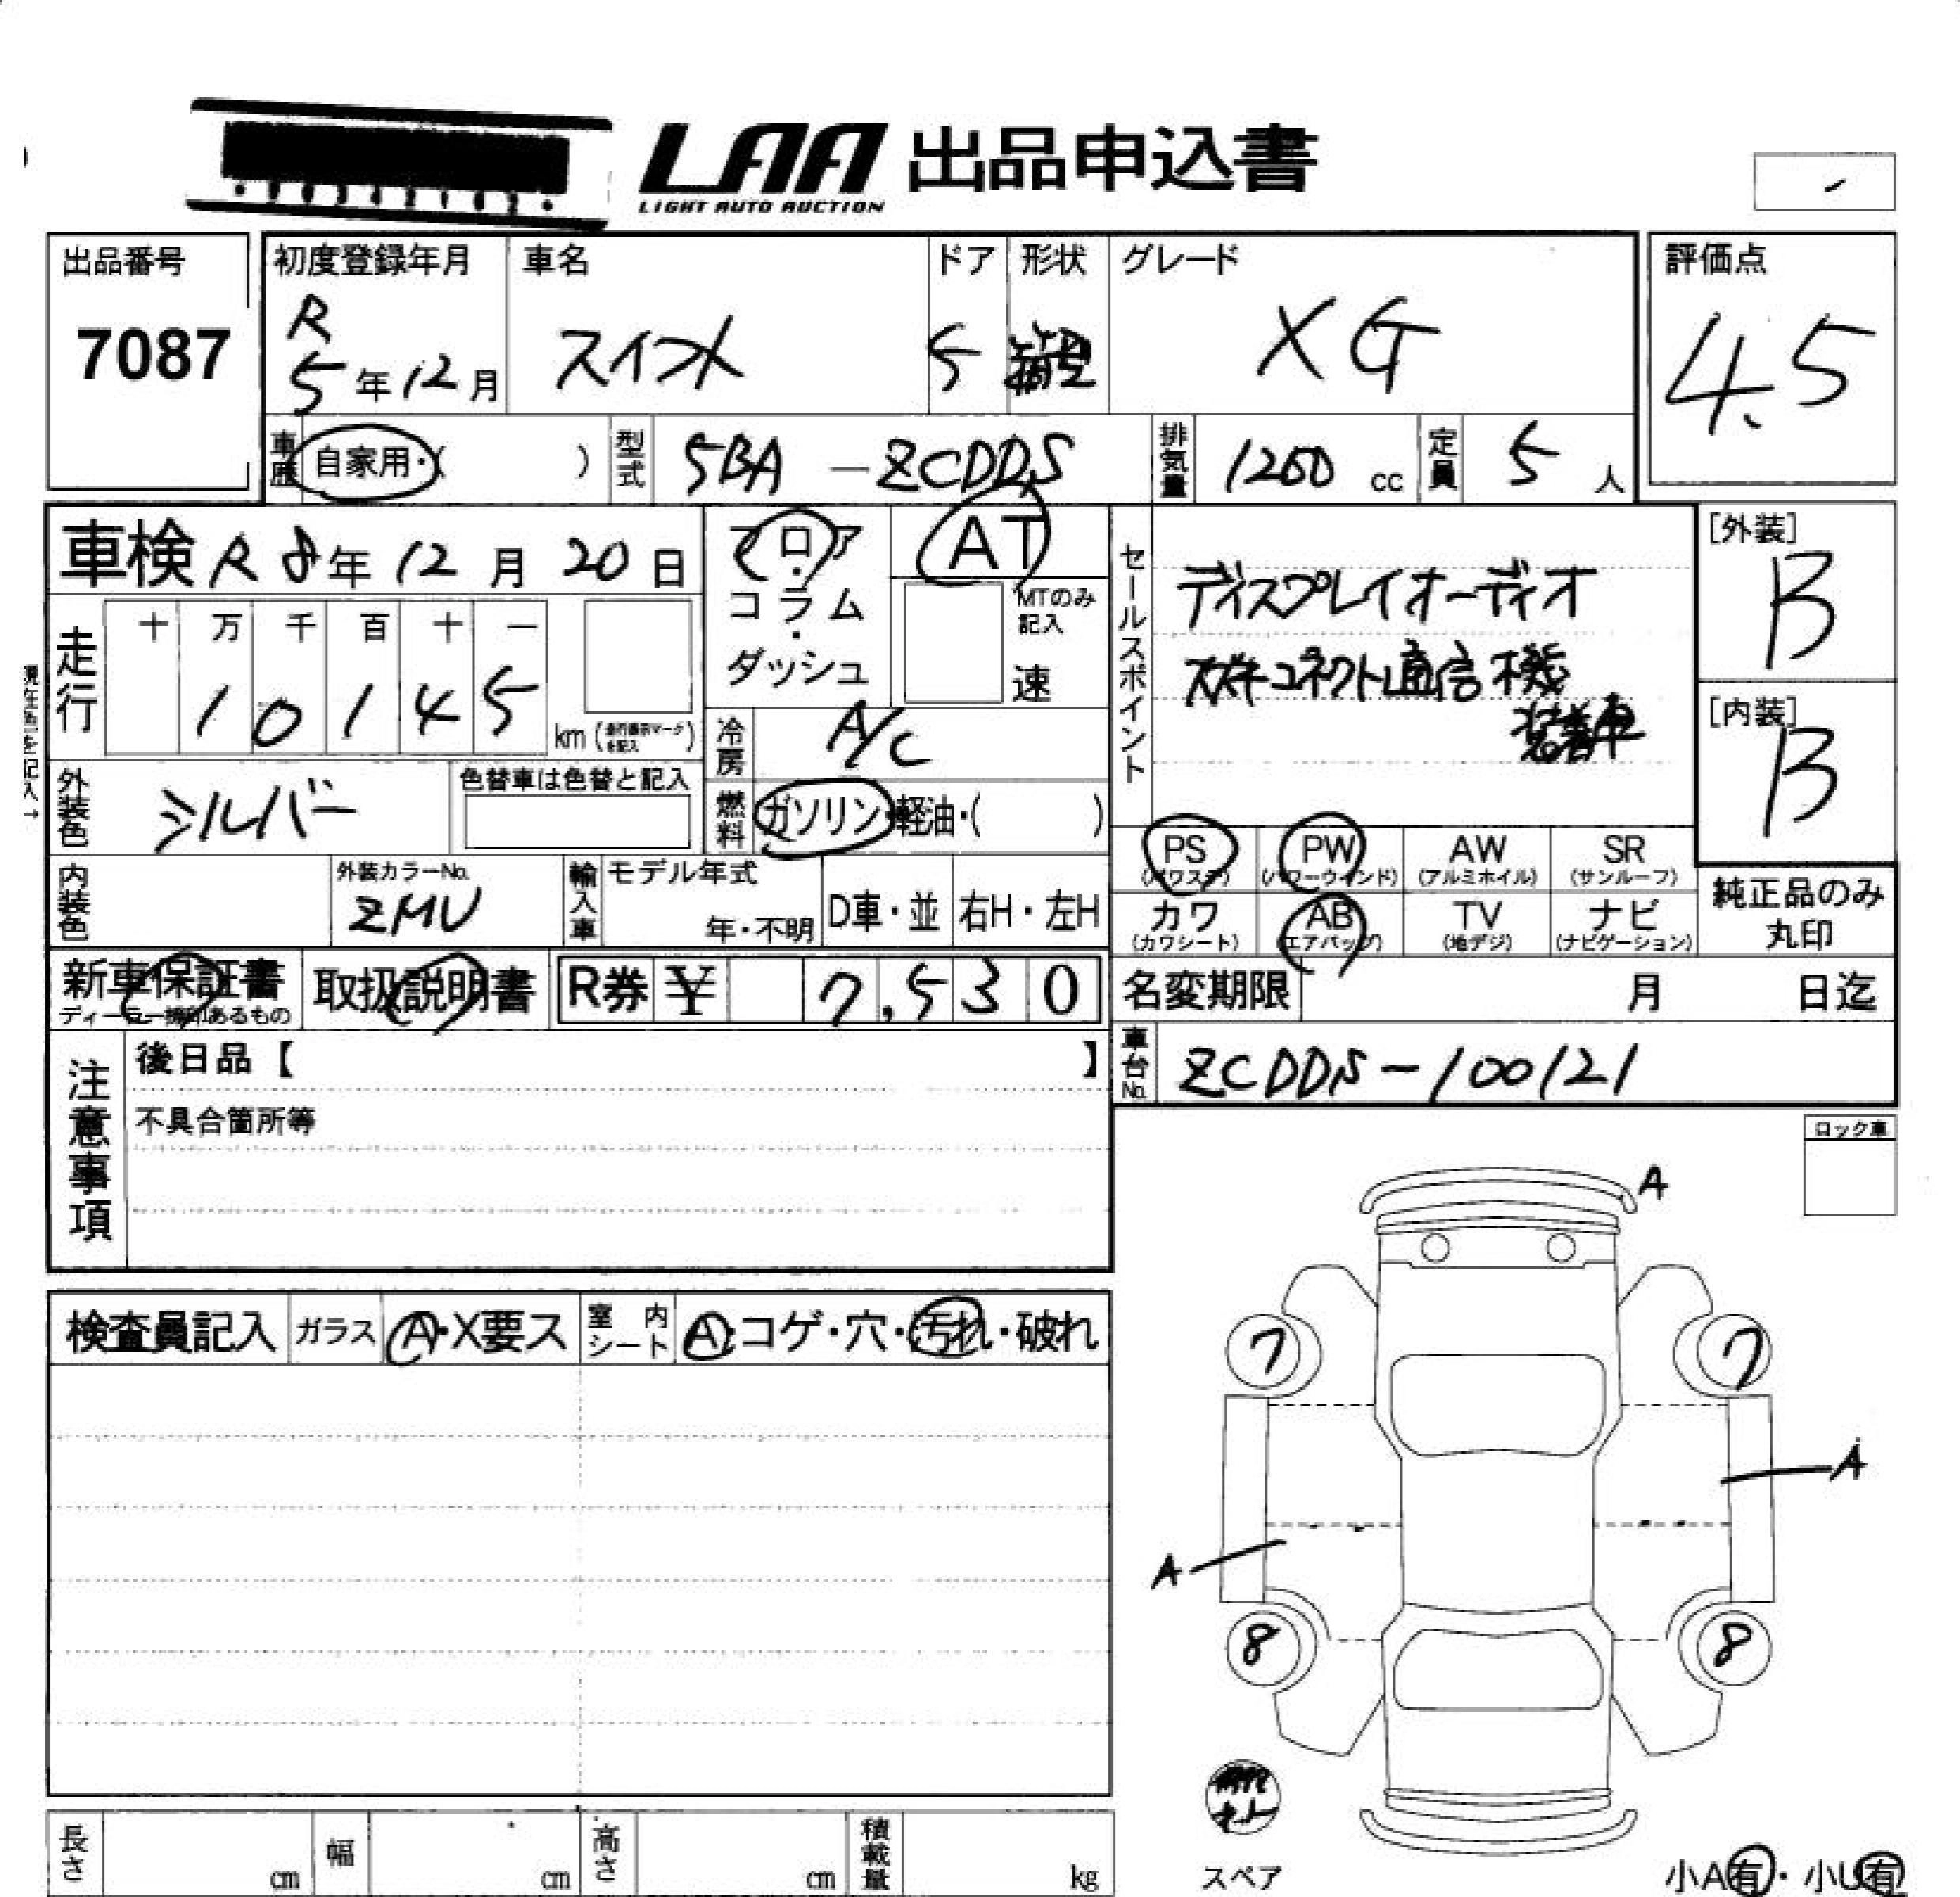 LAA 出品申込書
LIGHT AUTO AUCTION
出品番号
7087
初度登録年月
R
5年12月
車名
スイフト
ドア
5
形状
箱型
グレード
XG
評価点
4.5
車歴
自家用・( )
型式
5BA-ZCDDS
排気量
1200 cc
定員
5人
車検 R8年12月20日
走行
十 万 千 百 十 一
1 0 1 4 5
km (走行表示マークを記入)
現在色を記入→
フロア・コラム・ダッシュ
AT
MTのみ記入
速
冷房
A/C
燃料
ガソリン・軽油・( )
セールスポイント
ディスプレイオーディオ
スズキコネクト通信機
装着車
[外装]
B
[内装]
B
外装色
シルバー
色替車は色替と記入
内装色
外装カラーNo.
ZMU
輸入車
モデル年式
年・不明
D車・並
右H・左H
PS
(パワステ)
PW
(パワーウインド)
AW
(アルミホイル)
SR
(サンルーフ)
カワ
(カワシート)
AB
(エアバッグ)
TV
(地デジ)
ナビ
(ナビゲーション)
純正品のみ
丸印
新車保証書
ディーラー捺印あるもの
取扱説明書
R券 ¥ 7,530
名変期限
月 日迄
車台No.
ZCDDS-100121
注意事項
後日品【 】
不具合箇所等
ロック車
検査員記入
ガラス
A・X要ス
室内シート
A・コゲ・穴・汚れ・破れ
A
7
7
A
A
8
8
スペア
小A有・小U有
長さ
cm
幅
cm
高さ
cm
積載量
kg